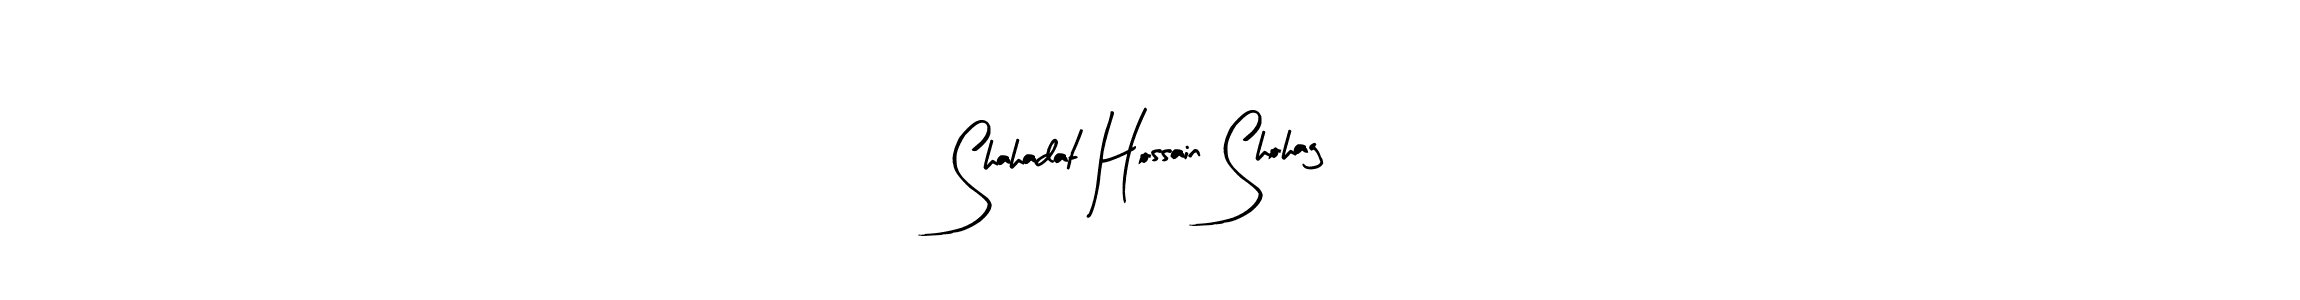 Shahadat Hossain Shohag